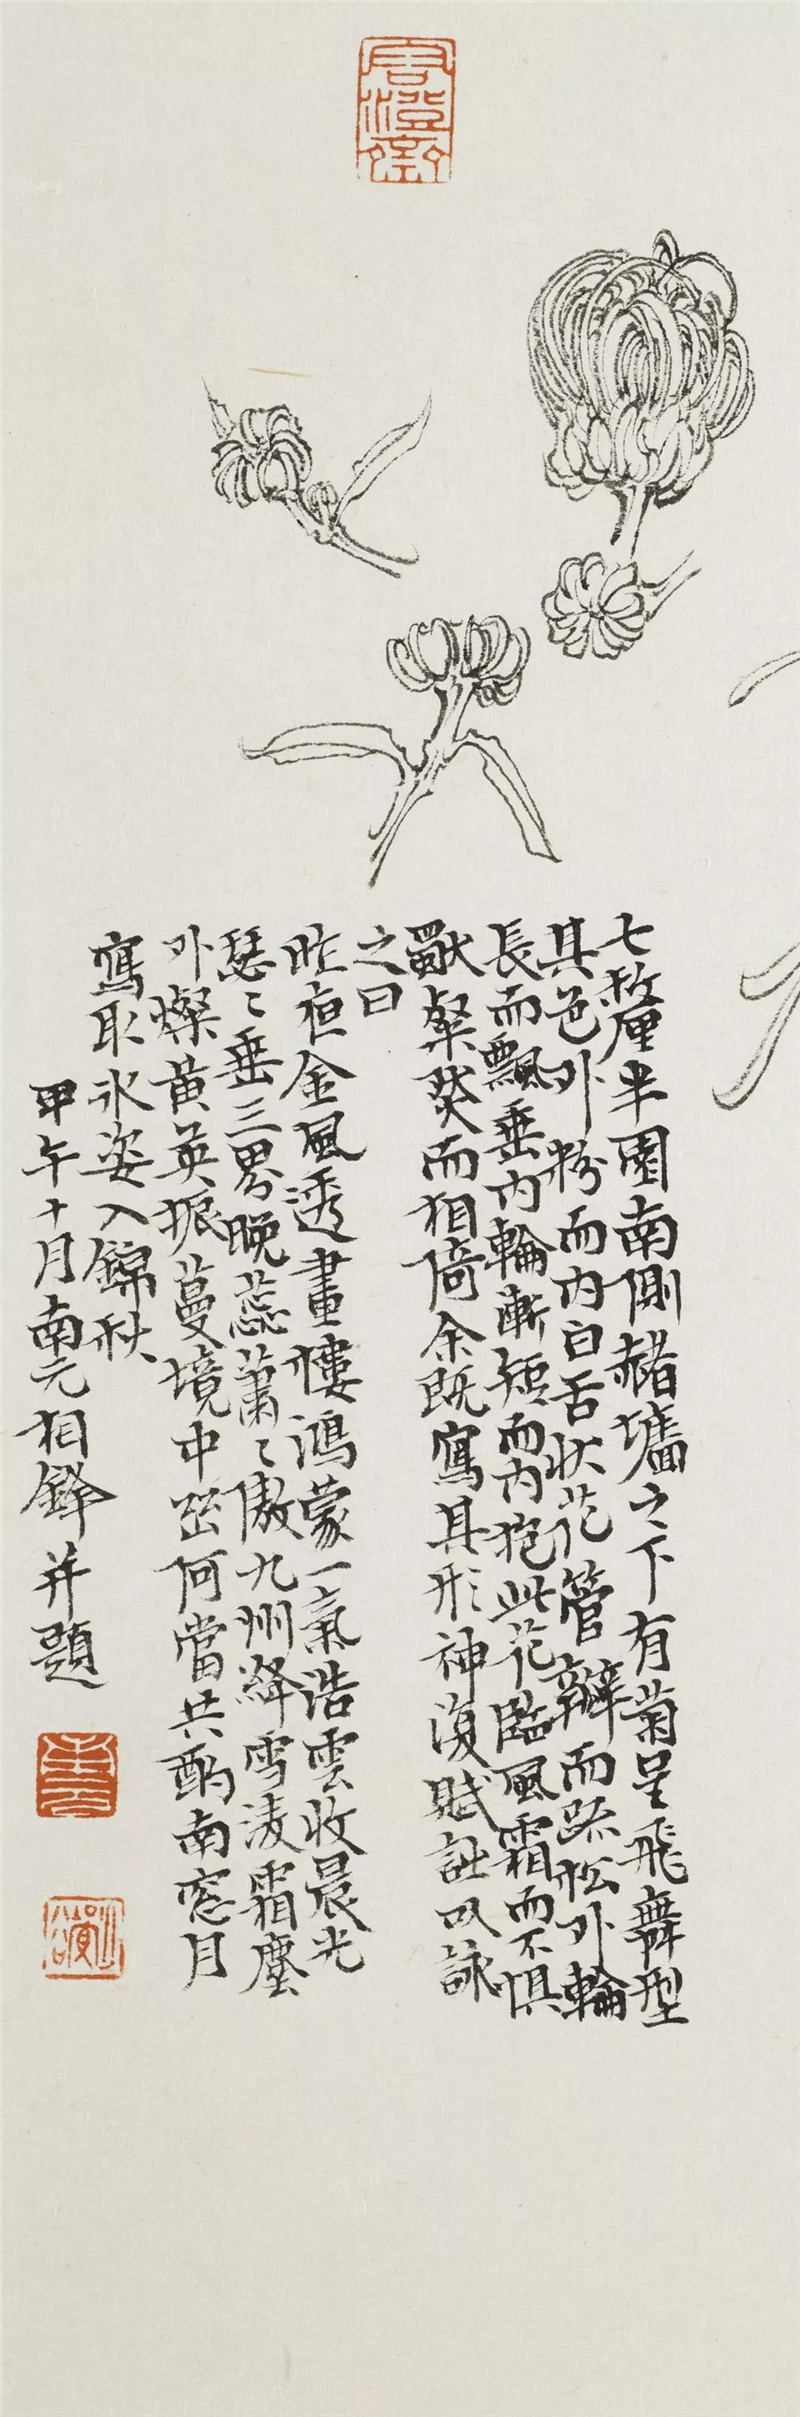 七𨤲半園南側赭墻之下有菊呈飛舞型
其色外粉而內白舌狀花管瓣而疏松外輪
長而飄垂內輪漸短而內抱此花臨風霜而不惧
獸粲粲而相倚余既寫其形神復賦詩以詠
之曰
昨夜金風透畫樓鴻蒙一氣浩雲收晨光
瑟〻垂三界晚蕊蕭〻傲九州絳雪凌霜塵
外燦黃英振蔓境中幽何當共酌南窓月
寫取冰姿入錦秋
甲午十月南元相鋒并題